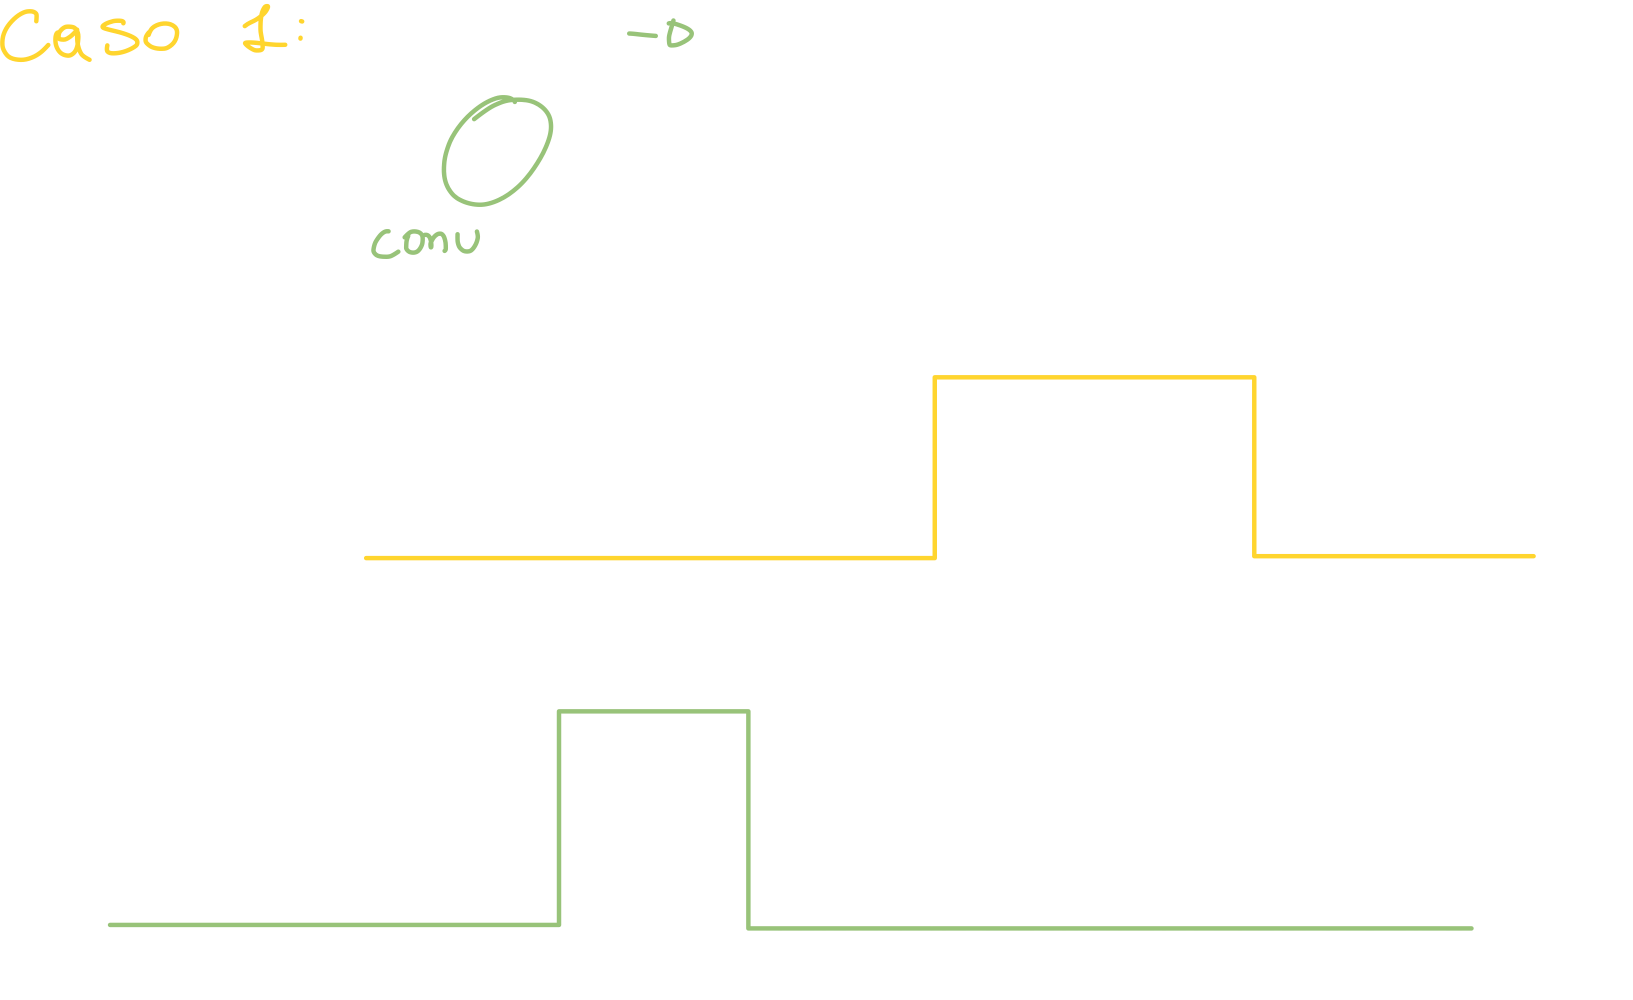 Caso 1:
conv